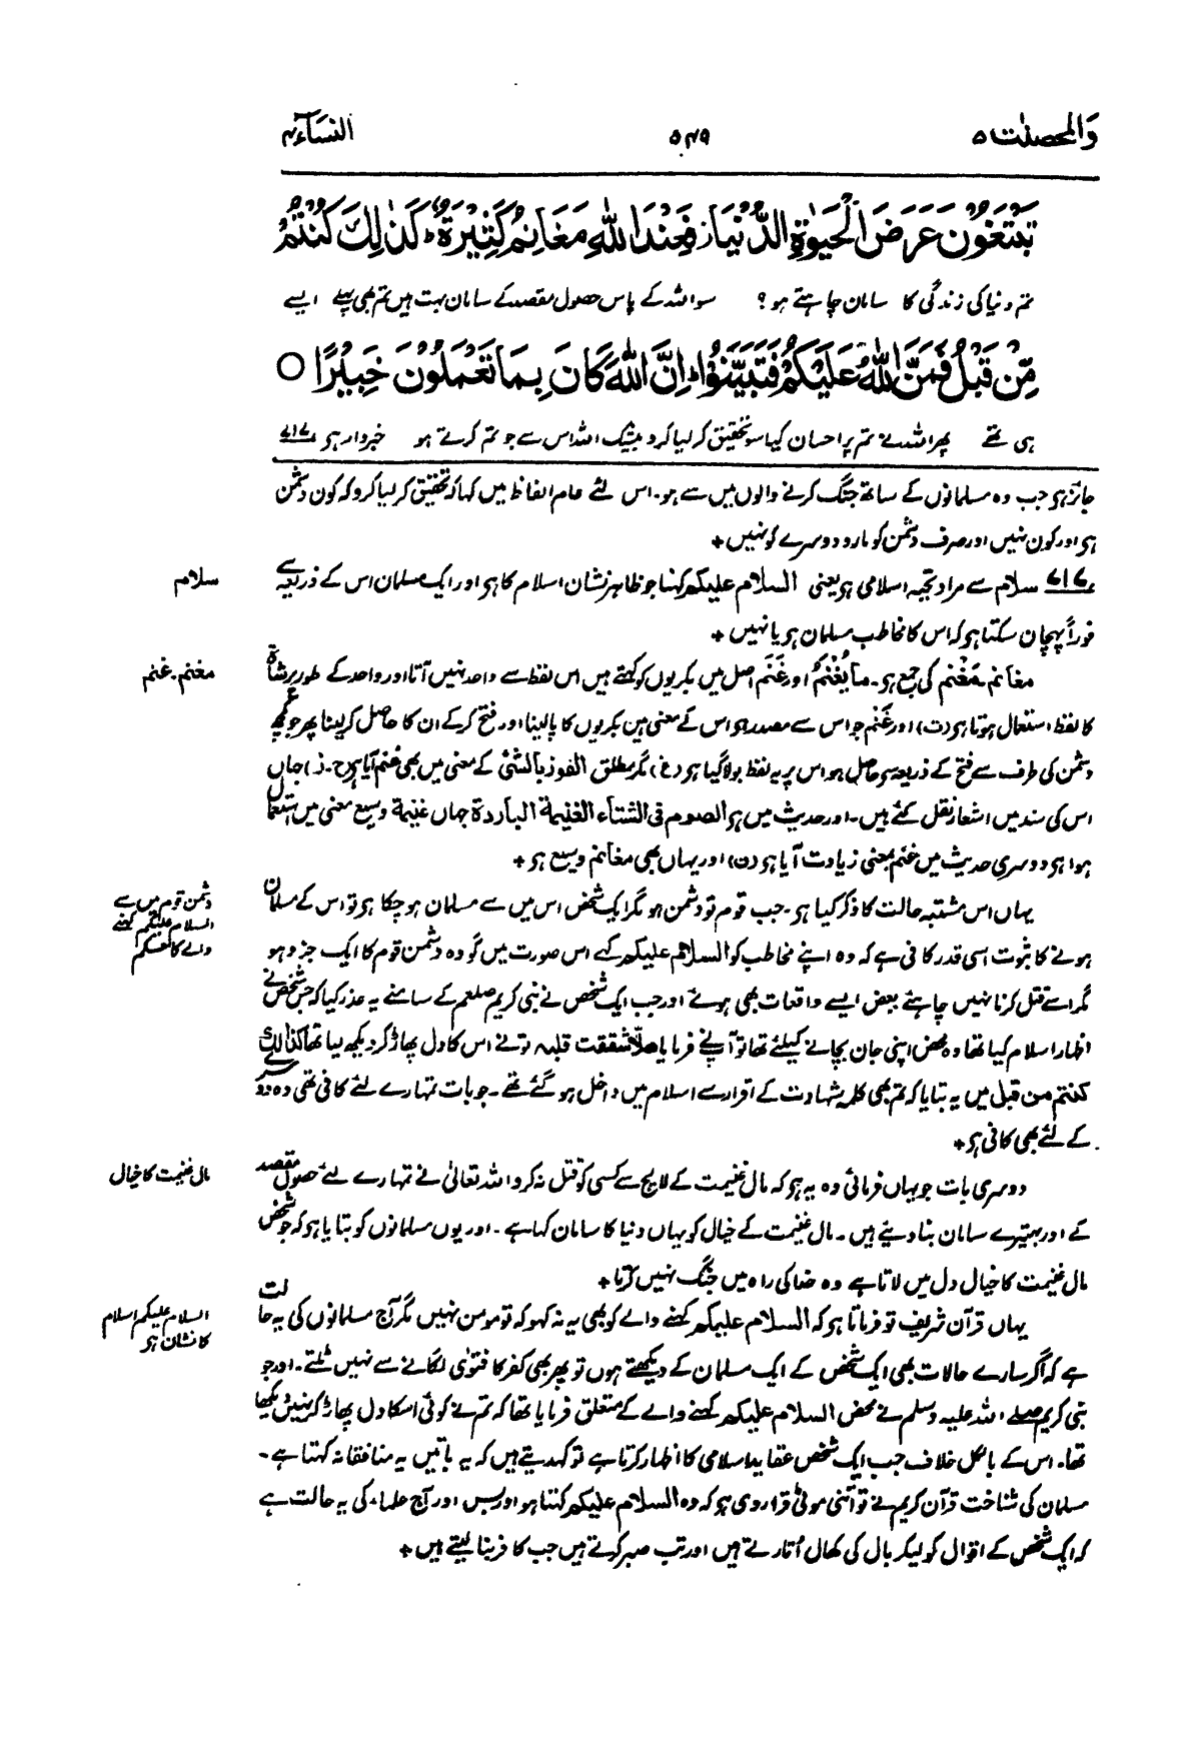 والمحصنٰت ۵
۵۴۹
النساء ۴
تَبْتَغُوْنَ عَرَضَ الْحَيٰوةِ الدُّنْيَا ز فَعِنْدَ اللّٰهِ مَغَانِمُ كَثِيْرَةٌ ط كَذٰلِكَ كُنْتُمْ
تم دنیا کی زندگی کا سامان چاہتے ہو؟ سو اللہ کے پاس حصول مقصد کے سامان بہت ہیں تم بھی پہلے ایسے
مِّنْ قَبْلُ فَمَنَّ اللّٰهُ عَلَيْكُمْ فَتَبَيَّنُوْا ط اِنَّ اللّٰهَ كَانَ بِمَا تَعْمَلُوْنَ خَبِيْرًا ○
ہی تھے پھر اللہ نے تم پر احسان کیا سو تحقیق کر لیا کرو بیشک اللہ اس سے جو تم کرتے ہو خبردار ہی ۷۱۷
جائز ہو جب وہ مسلمانوں کے ساتھ جنگ کرنے والوں میں سے ہو۔ اس لئے عام الفاظ میں کہا کہ تحقیق کر لیا کرو کہ کون دشمن
ہی اور کون نہیں اور صرف دشمن کو مارو دوسرے کو نہیں +
۷۱۷ سلام سے مراد تحیہ اسلامی ہی یعنی السلام علیکم کہنا جو ظاہر نشان اسلام کا ہی اور ایک مسلمان اس کے ذریعہ سے
سلام
فوراً پہچان سکتا ہو کہ اس کا مخاطب مسلمان ہو یا نہیں +
مغانم مَغْنَم کی جمع ہو۔ مایُغْنَمُ اور غَنَم اصل میں بکریوں کو کہتے ہیں اس لفظ سے واحد نہیں آتا اور واحد کے طور پر شاۃ
مغنم۔ غنم
کا لفظ استعمال ہوتا ہو (ت) اور غُنم جو اس سے مصدر ہو اس کے معنی ہیں بکریوں کا پا لینا اور فتح کر کے ان کا حاصل کر لینا پھر جو کچھ
دشمن کی طرف سے فتح کے ذریعہ سے حاصل ہو اس پر یہ لفظ بولا گیا ہو (غ) مگر مطلق الفوز بالشئ کے معنی میں بھی غُنم آیا ہو (ج۔ ذ) جہاں
اس کی سند میں اشعار نقل کئے ہیں۔ اور حدیث میں ہو الصوم فی الشتاء الغنیمۃ الباردۃ جہاں غنیمۃ وسیع معنی میں استعمال
ہوا ہو دوسری حدیث میں غنم بمعنی زیادت آیا ہو (ن) اور یہاں بھی مغانم وسیع ہو +
یہاں اس مشتبہ حالت کا ذکر کیا ہو۔ جب قوم تو دشمن ہو مگر ایک شخص اس میں سے مسلمان ہو چکا ہو تو اس کے مسلمان
دشمن قوم میں سے
السلام علیکم کہنے
والے کا حکم
ہونے کا ثبوت اسی قدر کافی ہے کہ وہ اپنے مخاطب کو السلام علیکم کہے اس صورت میں گو وہ دشمن قوم کا ایک جزو ہو
مگر اسے قتل کرنا نہیں چاہئے بعض ایسے واقعات بھی ہوئے اور جب ایک شخص نے نبی کریم صلعم کے سامنے یہ عذر کیا کہ جس شخص نے
اظہار اسلام کیا تھا وہ محض اپنی جان بچانے کیلئے تھا تو آپنے فرمایا ھلّا شققت قلبہ تونے اس کا دل پھاڑ کر دیکھ لیا تھا کذالک
کنتم من قبل میں یہ بتایا کہ تم بھی کلمہ شہادت کے اقرار سے اسلام میں داخل ہو گئے تھے۔ جو بات تمہارے لئے کافی تھی وہ دوسر
کے لئے بھی کافی ہو +
دوسری بات جو یہاں فرمائی وہ یہ ہو کہ مال غنیمت کے لالچ سے کسی کو قتل نہ کرو اللہ تعالیٰ نے تمہارے لئے حصول مقصد
مال غنیمت کا خیال
کے اور بہتیرے سامان بنا دیئے ہیں۔ مال غنیمت کے خیال کو یہاں دنیا کا سامان کہا ہے۔ اور یوں مسلمانوں کو بتایا ہو کہ جو شخص
مال غنیمت کا خیال دل میں لاتا ہے وہ خدا کی راہ میں جنگ نہیں کرتا +
یہاں قرآن شریف تو فرماتا ہو کہ السلام علیکم کہنے والے کو بھی یہ نہ کہو کہ تو مومن نہیں مگر آج مسلمانوں کی یہ حالت
السلام علیکم اسلام
کا نشان ہو
ہے کہ اگر سارے حالات بھی ایک شخص کے ایک مسلمان کے دیکھتے ہوں تو پھر بھی کفر کا فتویٰ لگانے سے نہیں ٹلتے۔ اور جو
نبی کریم صلے اللہ علیہ وسلم نے محض السلام علیکم کہنے والے کے متعلق فرمایا تھا کہ تم نے کوئی اسکا دل پھاڑ کر نہیں دیکھا
تھا۔ اس کے بالکل خلاف جب ایک شخص عقاید اسلامی کا اظہار کرتا ہے تو کہدیتے ہیں کہ یہ باتیں یہ منافقانہ کہتا ہے۔
مسلمان کی شناخت قرآن کریم نے تو اتنی موٹی قرار دی ہو کہ وہ السلام علیکم کہتا ہو اور بس اور آج علماء کی یہ حالت ہے
کہ ایک شخص کے اقوال کو لیکر بال کی کھال اُتارتے ہیں اور تب صبر کرتے ہیں جب کافر بنا لیتے ہیں +